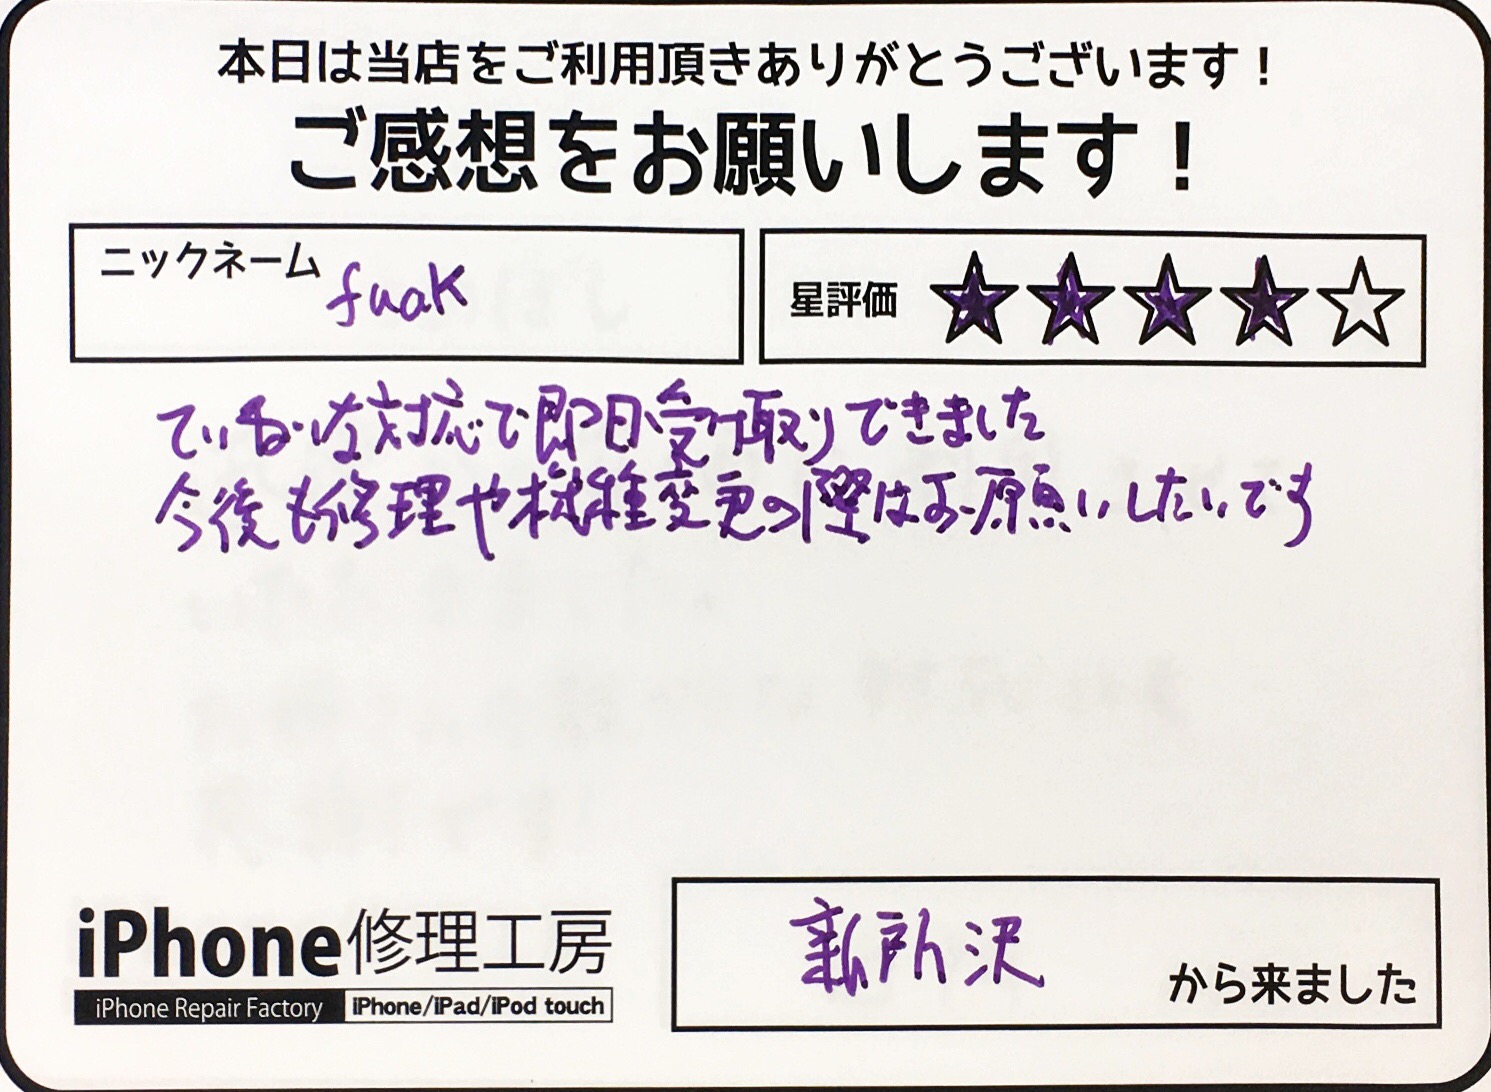 本日は当店をご利用頂きありがとうございます！
ご感想をお願いします！
ニックネーム fuaK
星評価 ★★★★☆
ていねいな対応で即日受け取りできました
今後も修理や機種変更の際はお願いしたいです
iPhone修理工房
iPhone Repair Factory iPhone/iPad/iPod touch
新所沢 から来ました